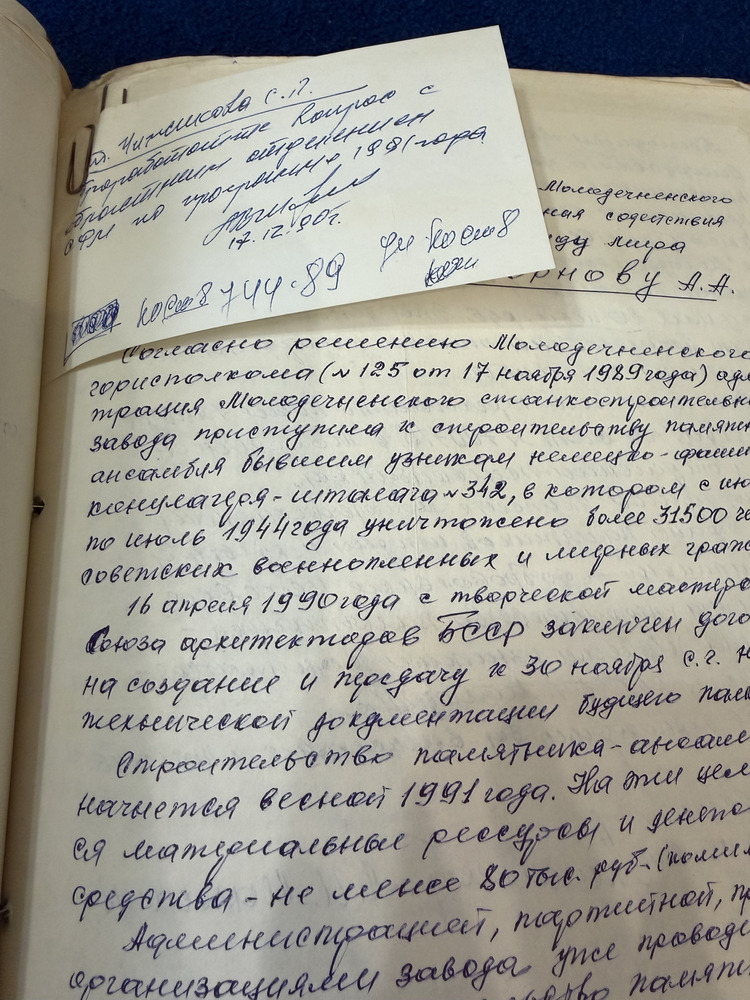 т. Чижикова С.П.
Проработайте вопрос с
областным отделением
СФМ по программе 1991 года.
17.12.90г.
744-89
Молодечненского
ная содействия
нду мира
рнову А.А.
Согласно решению Молодечненского
горисполкома (№ 125 от 17 ноября 1989 года) адм
трация Молодечненского станкостроительн
завода приступила к строительству памятн
ансамбля бывшим узникам немецко-фаши
концлагеря-шталага №342, в котором с ию
по июль 1944 года уничтожено более 31500 че
советских военнопленных и мирных граж
16 апреля 1990 года с творческой мастерс
Союза архитекторов БССР заключен дого
на создание и передачу к 30 ноября с.г. н
технической документации будущего пам
Строительство памятника-ансам
начнется весной 1991 года. На эти цел
ся материальные ресурсы и денеж
средства - не менее 80 тыс. руб.
Администрацией, партийной, пр
организациями завода уже провод
памят